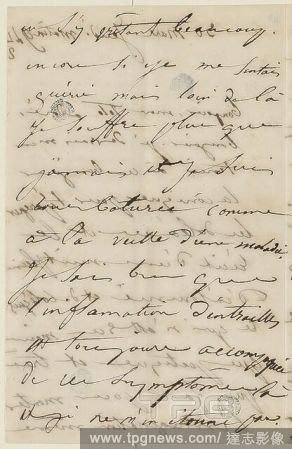 en s'y prêtant beaucoup.
encore si je me sentais
guérie mais loin de là
je souffre plus que
jamais et je suis
courbaturée comme
à la veille d'une maladie
je sais bien que
l'inflamation d'entrailles
est toujours accompagnée
de ces symptômes là
TPG
www.tpgnews.com 達志影像